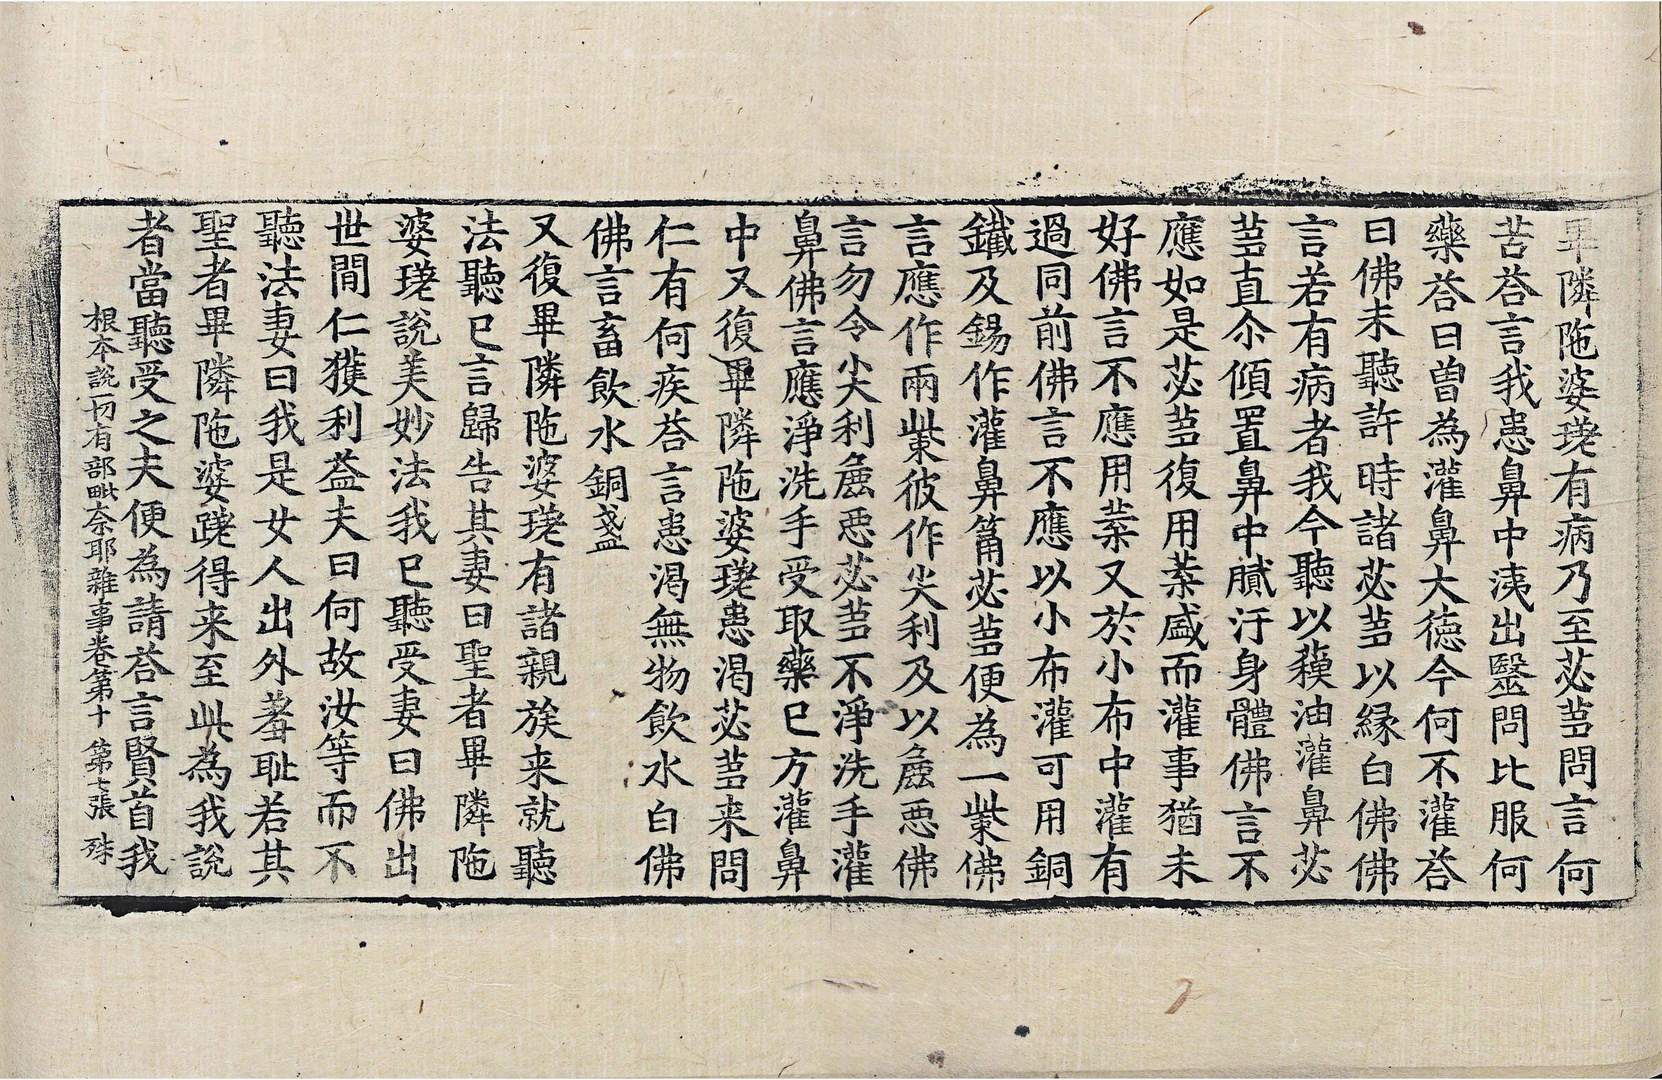 畢隣陁婆蹉有病乃至苾芻問言何
苦荅言我患鼻中洟出醫問比服何
藥荅曰曽為灌鼻大德今何不灌荅
曰佛未聽許時諸苾芻以縁白佛佛
言若有病者我今聽以蘇油灌鼻苾
芻直尒傾置鼻中膩汙身體佛言不
應如是苾芻復用葉盛而灌事猶未
好佛言不應用葉又於小布中灌有
過同前佛言不應以小布灌可用銅
鐵及錫作灌鼻筩苾芻便為一觜佛
言應作兩觜彼作尖利及以麁惡佛
言勿令尖利麁惡苾芻不淨洗手灌
鼻佛言應淨洗手受取藥已方灌鼻
中又復畢隣陁婆蹉患渴苾芻来問
仁有何疾荅言患渴無物飲水白佛
佛言畜飲水銅盞
又復畢隣陁婆蹉有諸親族来就聽
法聽已言歸告其妻曰聖者畢隣陁
婆蹉說美妙法我已聽受妻曰佛出
世間仁獲利益夫曰何故汝等而不
聽法妻曰我是女人出外羞耻若其
聖者畢隣陁婆蹉得来至此為我說
者當聽受之夫便為請荅言賢首我
根本說一切有部毗奈耶雜事卷第十 第七張 殊